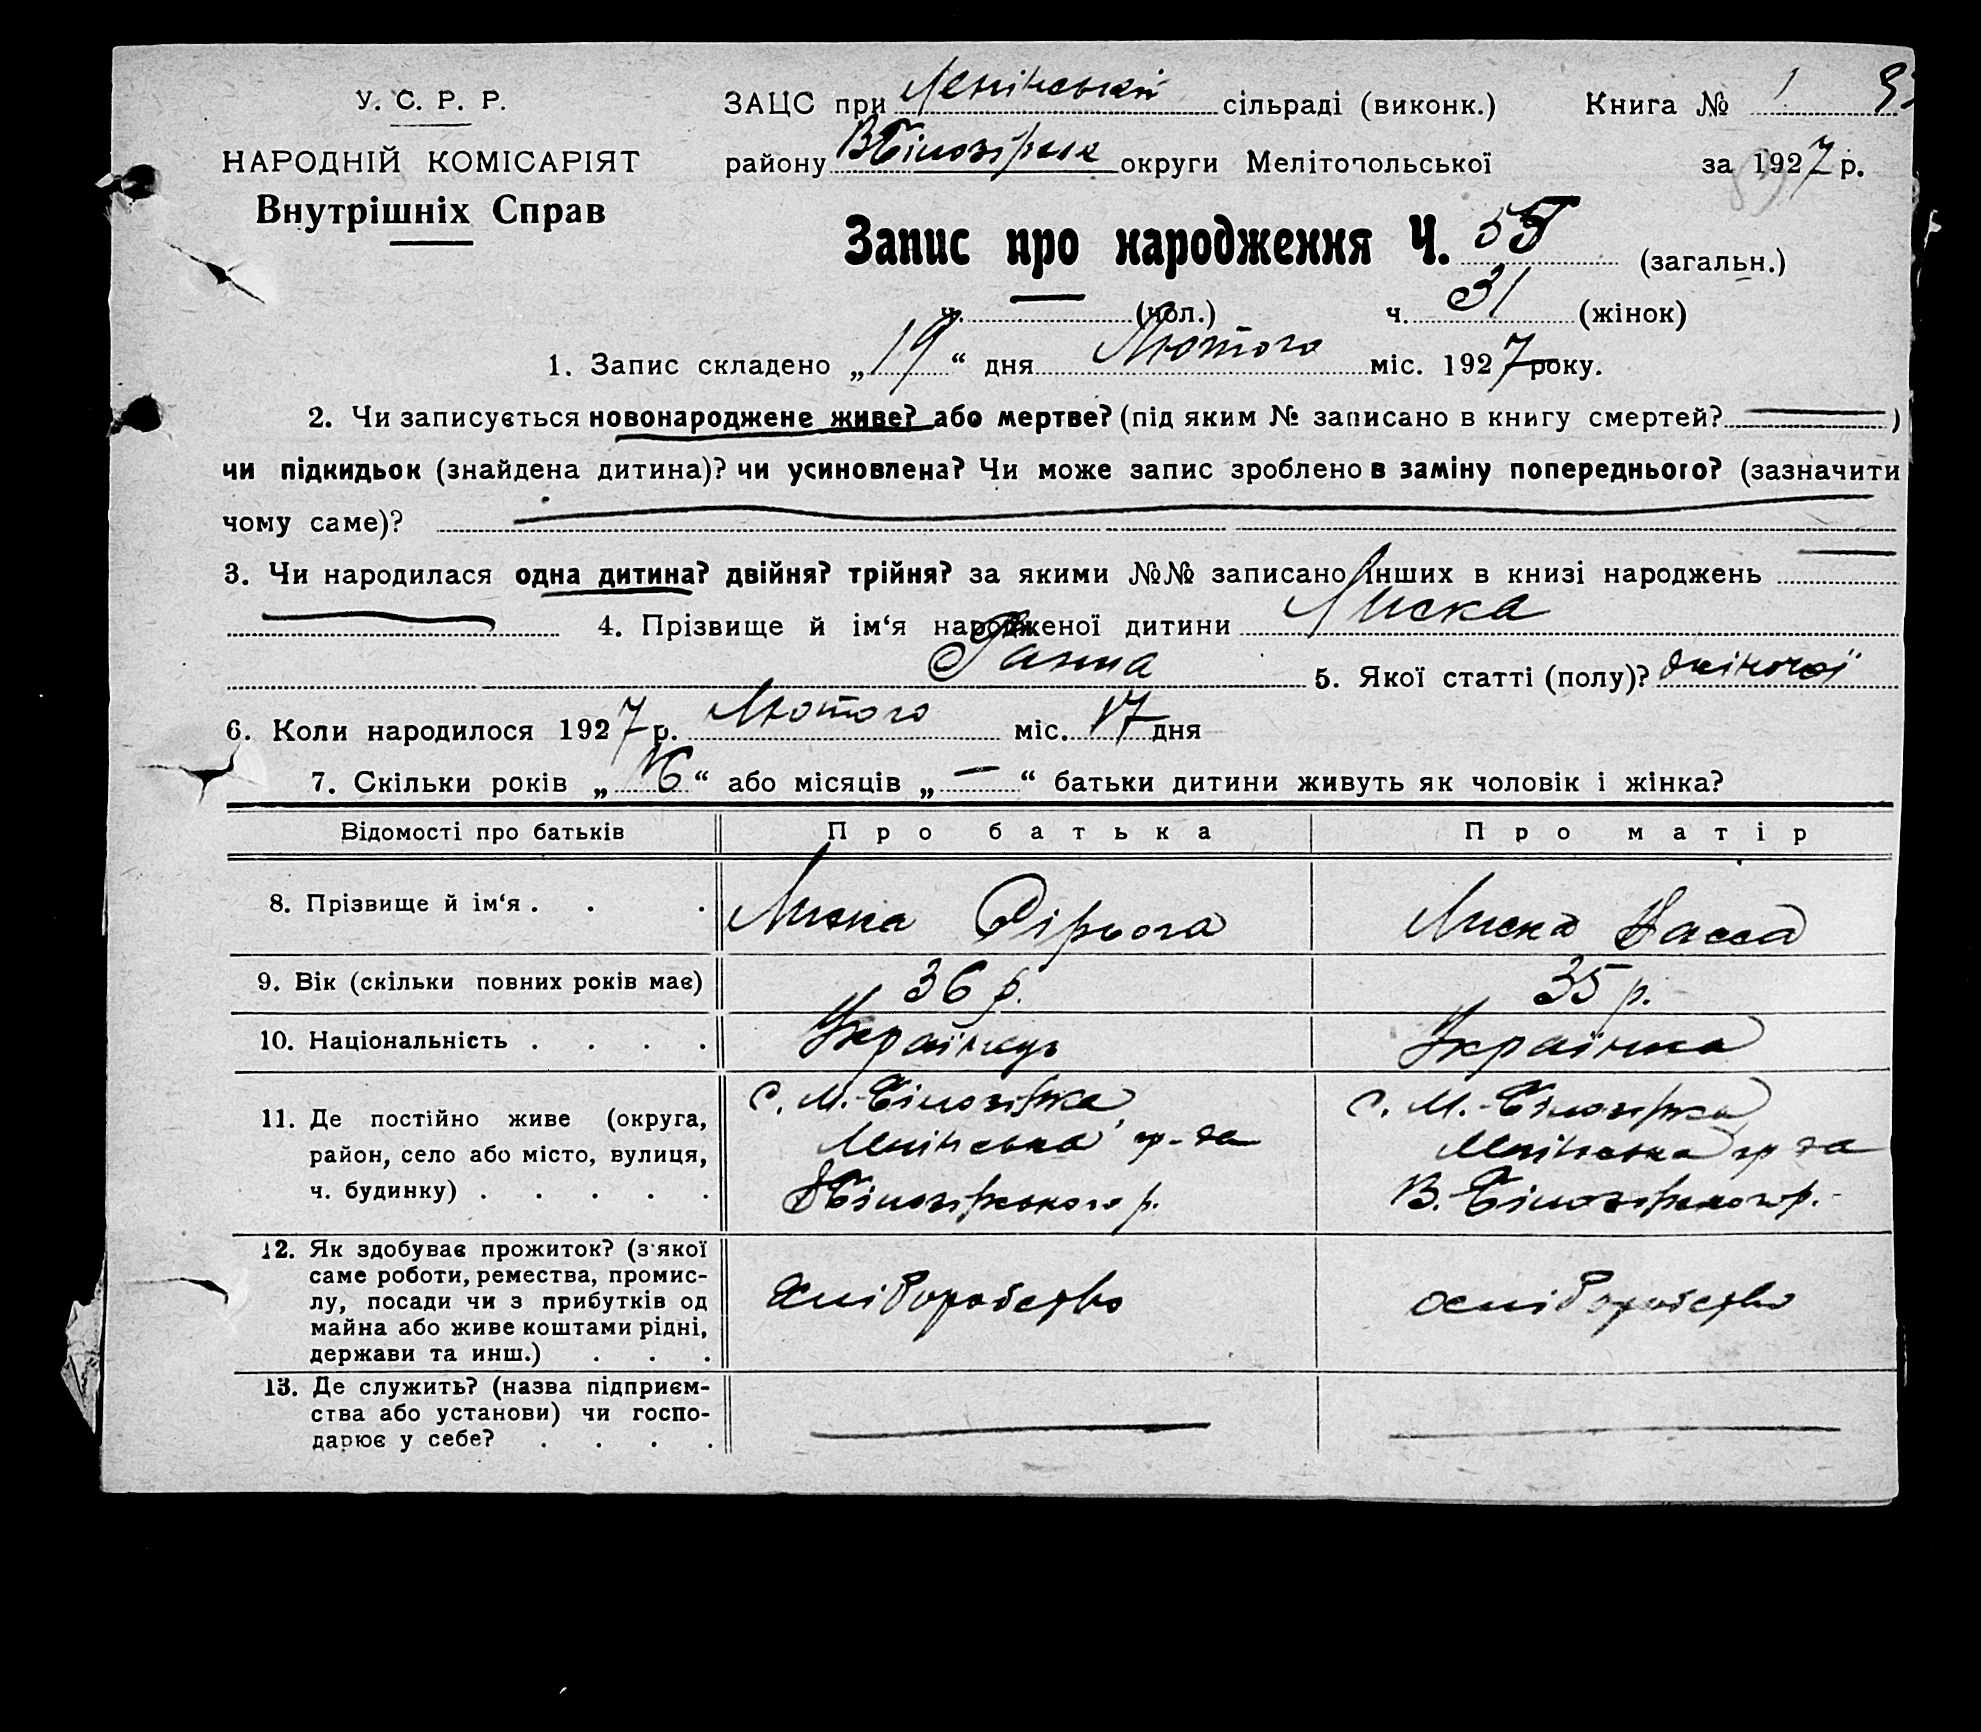 У. С. Р. Р.
НАРОДНІЙ КОМІСАРІЯТ
Внутрішніх Справ
ЗАЦС при Ленінській сільраді (виконк.) Книга № 1
району В Білозірськ округи Мелітопольської за 1927 р.
Запис про народження Ч. 55 (загальн.)
ч. (чол.) ч. 31 (жінок)
1. Запис складено „19“ дня Лютого міс. 1927 року.
2. Чи записується новонароджене живе? або мертве? (під яким № записано в книгу смертей? )
чи підкидьок (знайдена дитина)? чи усиновлена? Чи може запис зроблено в заміну попереднього? (зазначити
чому саме)?
3. Чи народилася одна дитина? двійня? трійня? за якими №№ записано інших в книзі народжень
4. Прізвище й ім‘я народженої дитини Лиска
Ганна 5. Якої статті (полу)? жіночої
6. Коли народилося 1927 р. Лютого міс. 17 дня
7. Скільки років „16“ або місяців „—“ батьки дитини живуть як чоловік і жінка?
Відомості про батьків Про батька Про матір
8. Прізвище й ім‘я . . . Лиска Лиска Васса
9. Вік (скільки повних років має) 36 р. 35 р.
10. Національність . . . . Українець Українка
11. Де постійно живе (округа,
район, село або місто, вулиця,
ч. будинку) . . . . .
с. М.-Білозірка
Ленінська р-да
ВБілозірського р.
с. М.-Білозірка
Ленінська р-да
В.-Білозірського р.
12. Як здобуває прожиток? (з якої
саме роботи, ремества, промис-
лу, посади чи з прибутків од
майна або живе коштами рідні,
держави та инш.) . . .
хліборобство
хліборобство
13. Де служить? (назва підприєм-
ства або установи) чи госпо-
дарює у себе? . . . .